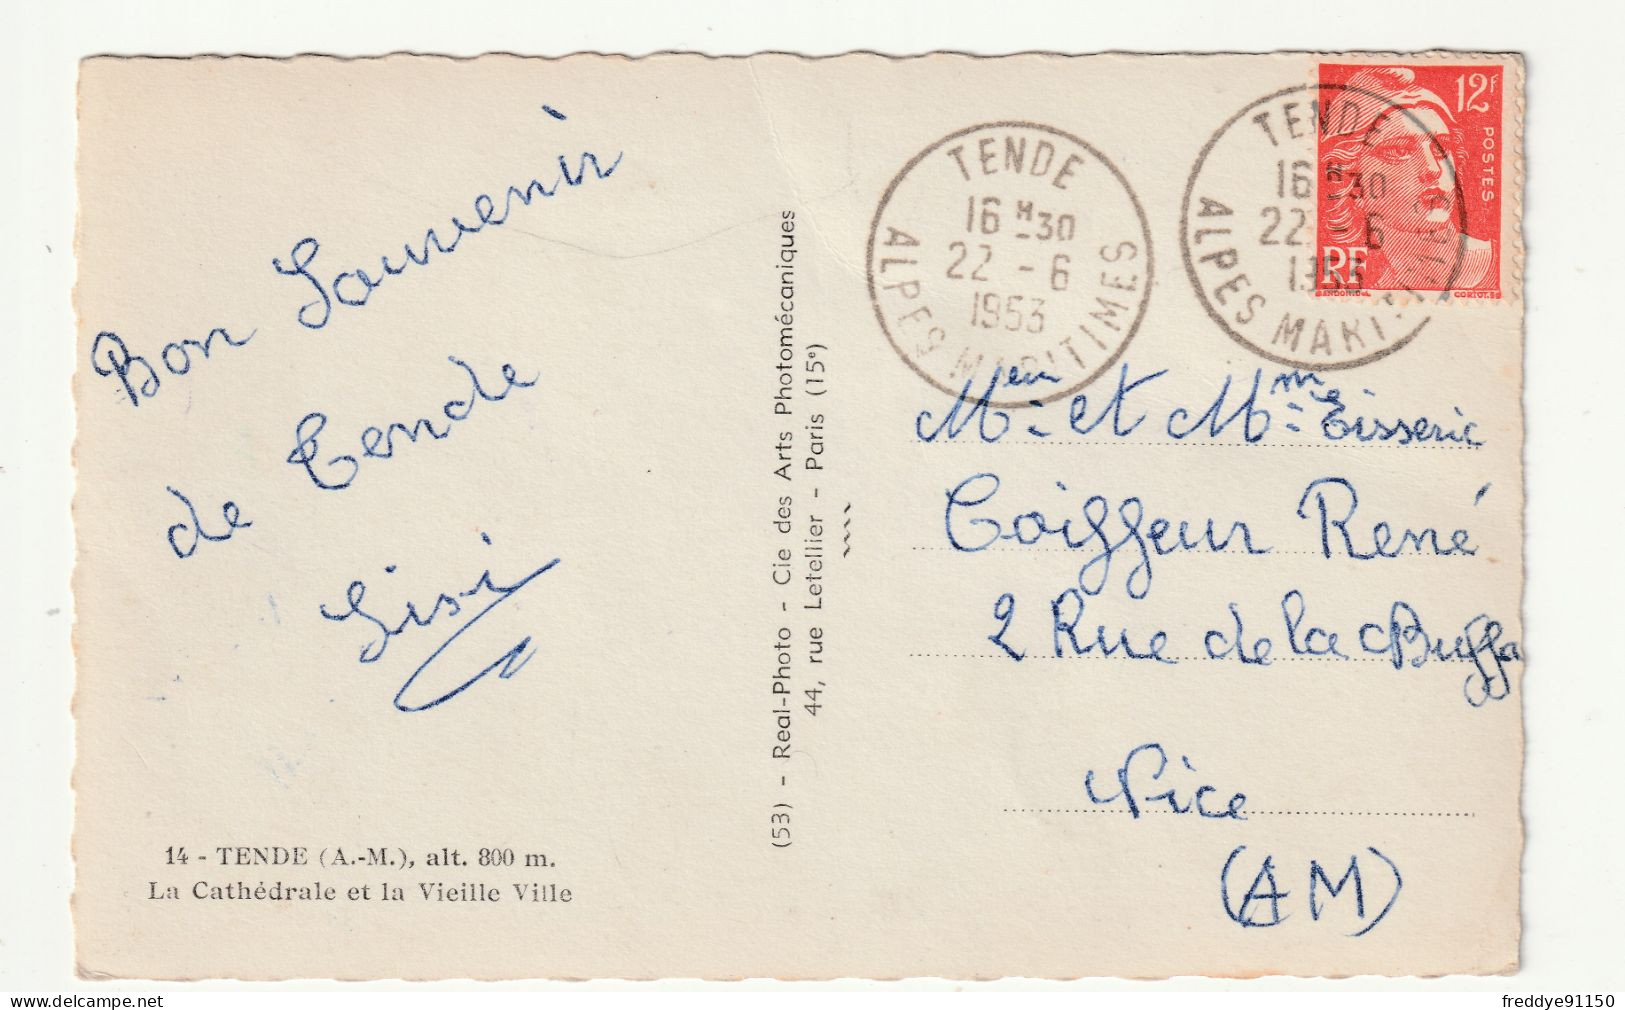 Bon Souvenir
de Tende
Gisi
14 - TENDE (A.-M.), alt. 800 m.
La Cathédrale et la Vieille Ville
(53) - Real-Photo - Cie des Arts Photomécaniques
44, rue Letellier - Paris (15e)
TENDE
16 H 30
22 - 6
1953
ALPES MARITIMES
TENDE
16 H 30
22 - 6
1953
ALPES MARITIMES
12F
POSTES
RF
GANDON
CORTOT
et Mme Tisseric
Coiffeur René
2 Rue de la Buffa
Nice
(AM)
freddye91150